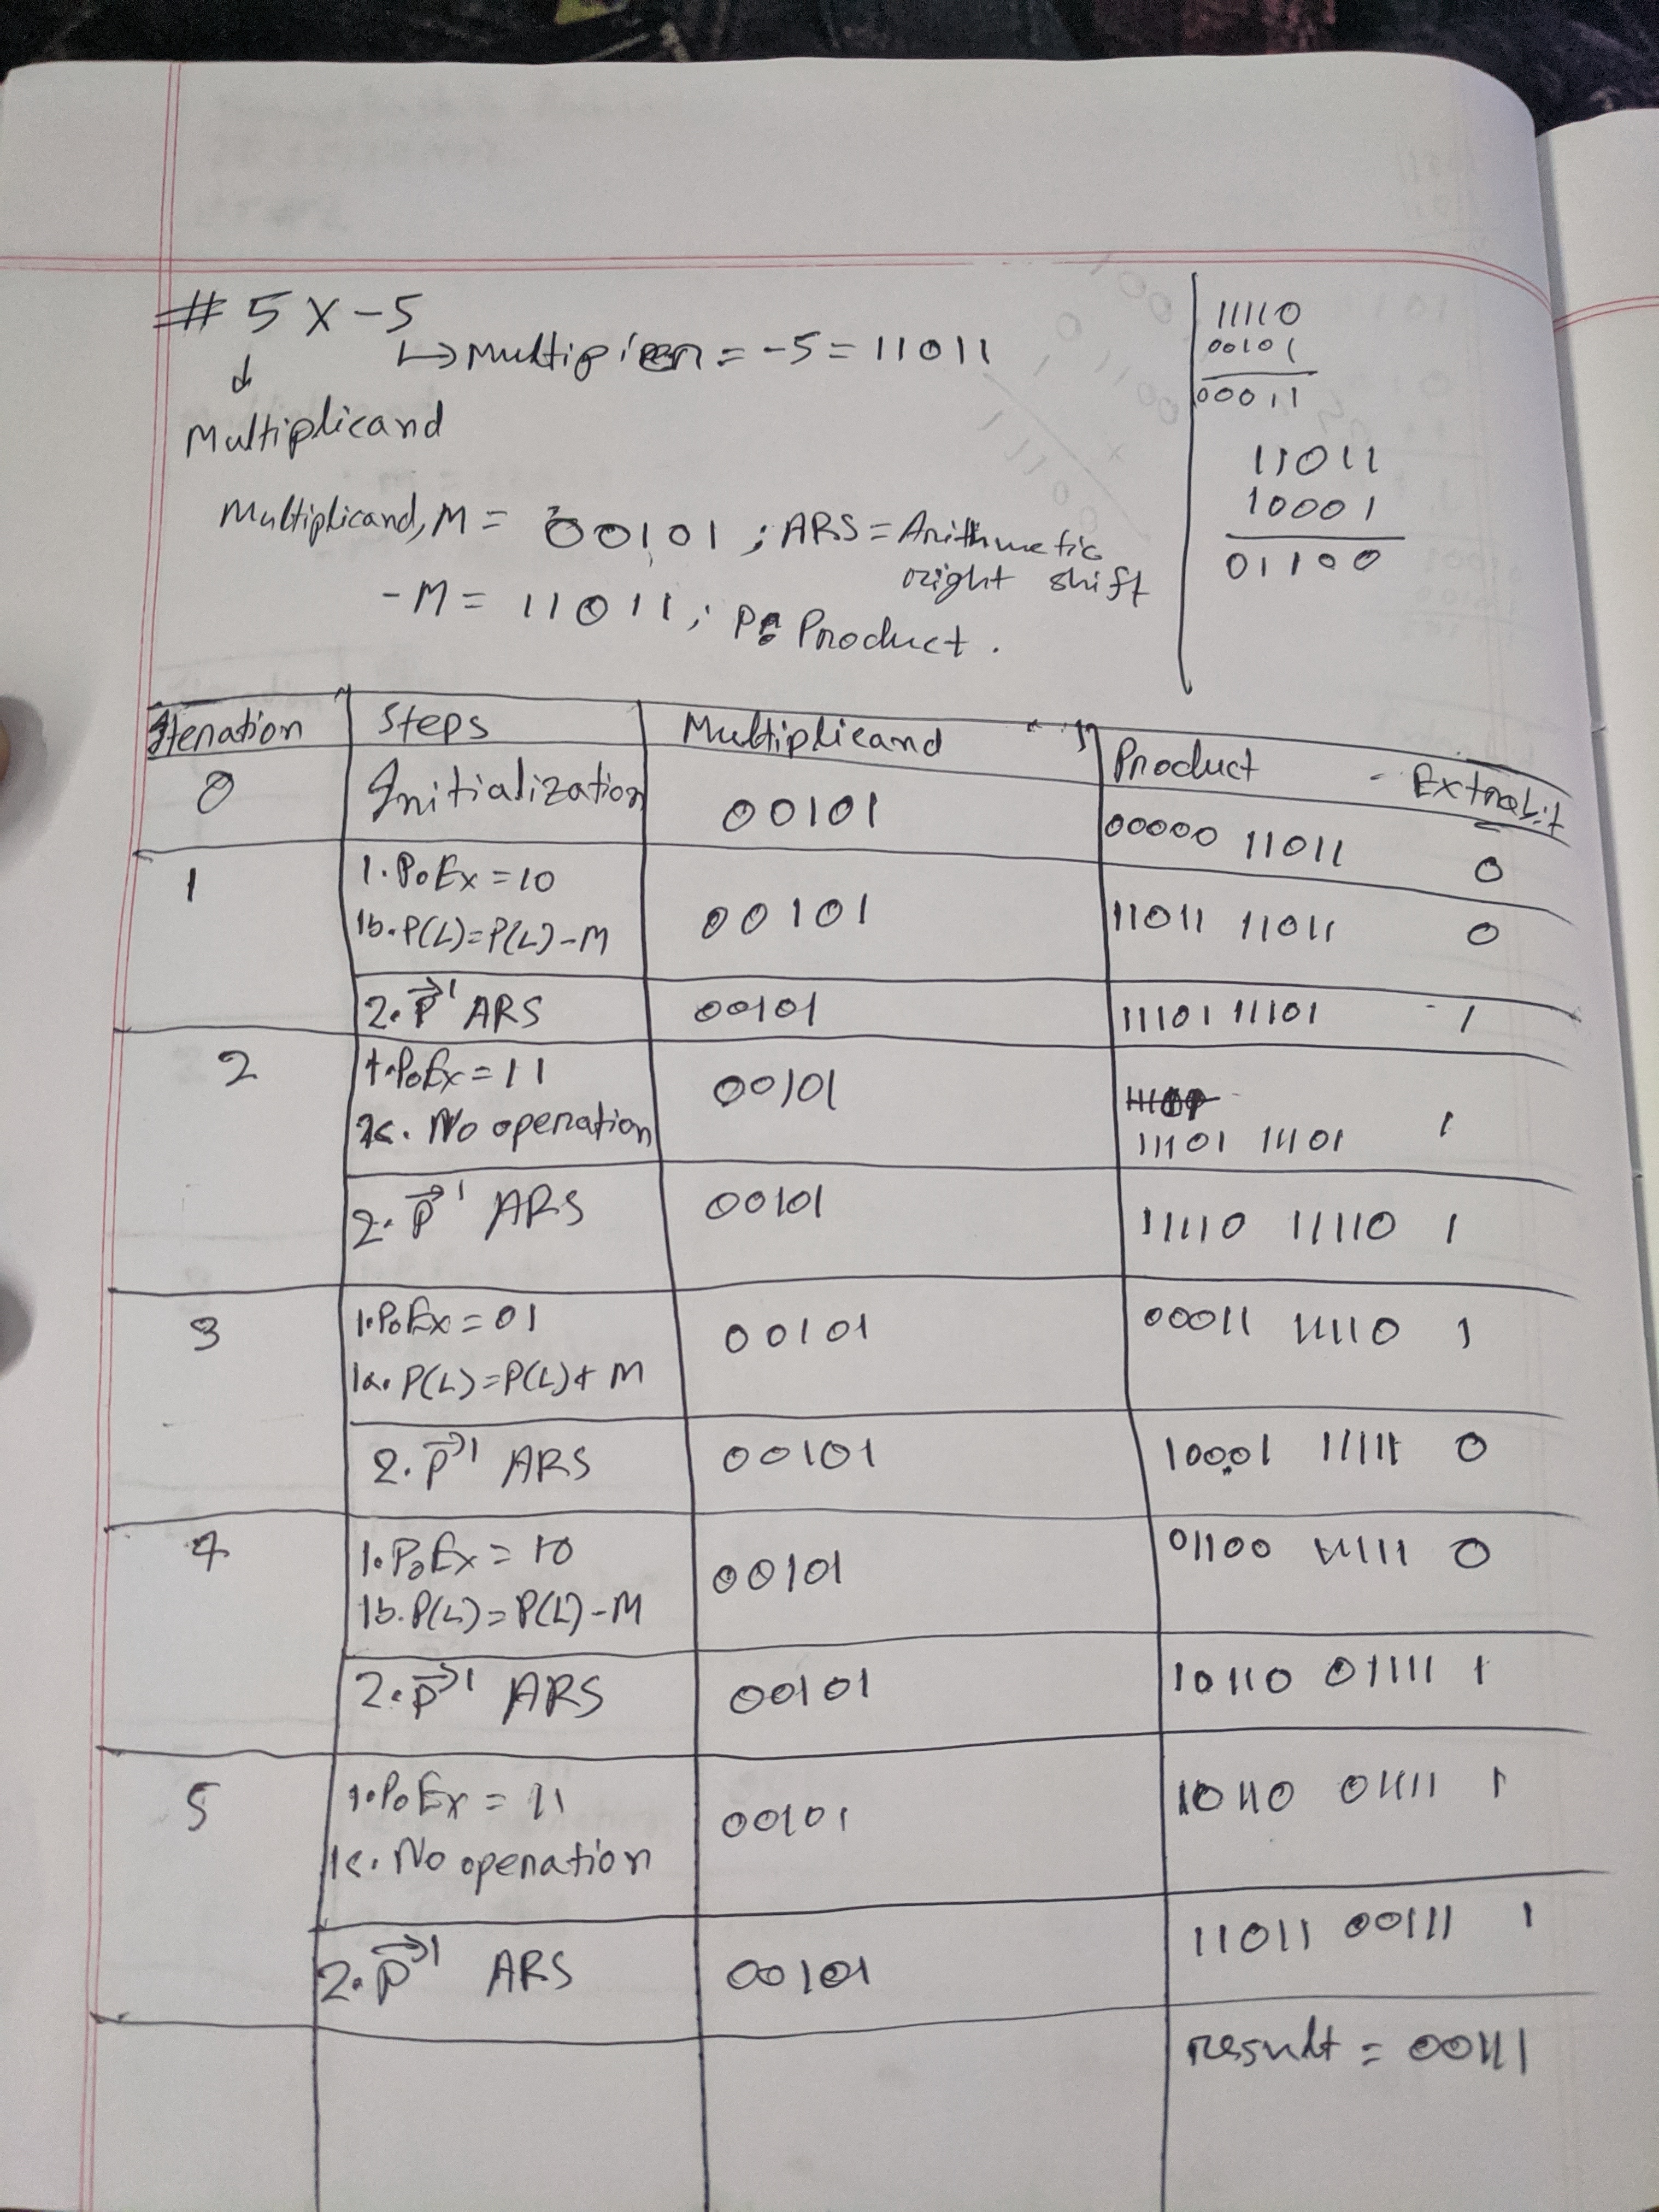 # 5 X -5
↳ Multiplier = -5 = 11011
↓
Multiplicand
Multiplicand, M = 00101 ; ARS = Arithmetic
right shift
-M = 11011 ; P: Product .
11110
00101
00011
11011
10001
01100
Iteration Steps Multiplicand Product - Extrabit
0 Initialization 00101 00000 11011 0
1 1. P₀Ex = 10
1b. P(L) = P(L) - M 00101 11011 11011 0
2. P→¹ ARS 00101 11101 11101 1
2 1. P₀Ex = 11 00101
1c. No operation 11101 11101 1
2. P→¹ ARS 00101 11110 11110 1
3 1. P₀Ex = 01 00101 00011 11110 1
1a. P(L) = P(L) + M
2. P→¹ ARS 00101 10001 11111 0
4 1. P₀Ex = 10 00101 01100 11111 0
1b. P(L) = P(L) - M
2. P→¹ ARS 00101 10110 01111 1
5 1. P₀Ex = 11 00101 10110 01111 1
1c. No operation
2. P→¹ ARS 00101 11011 00111 1
result = 00111